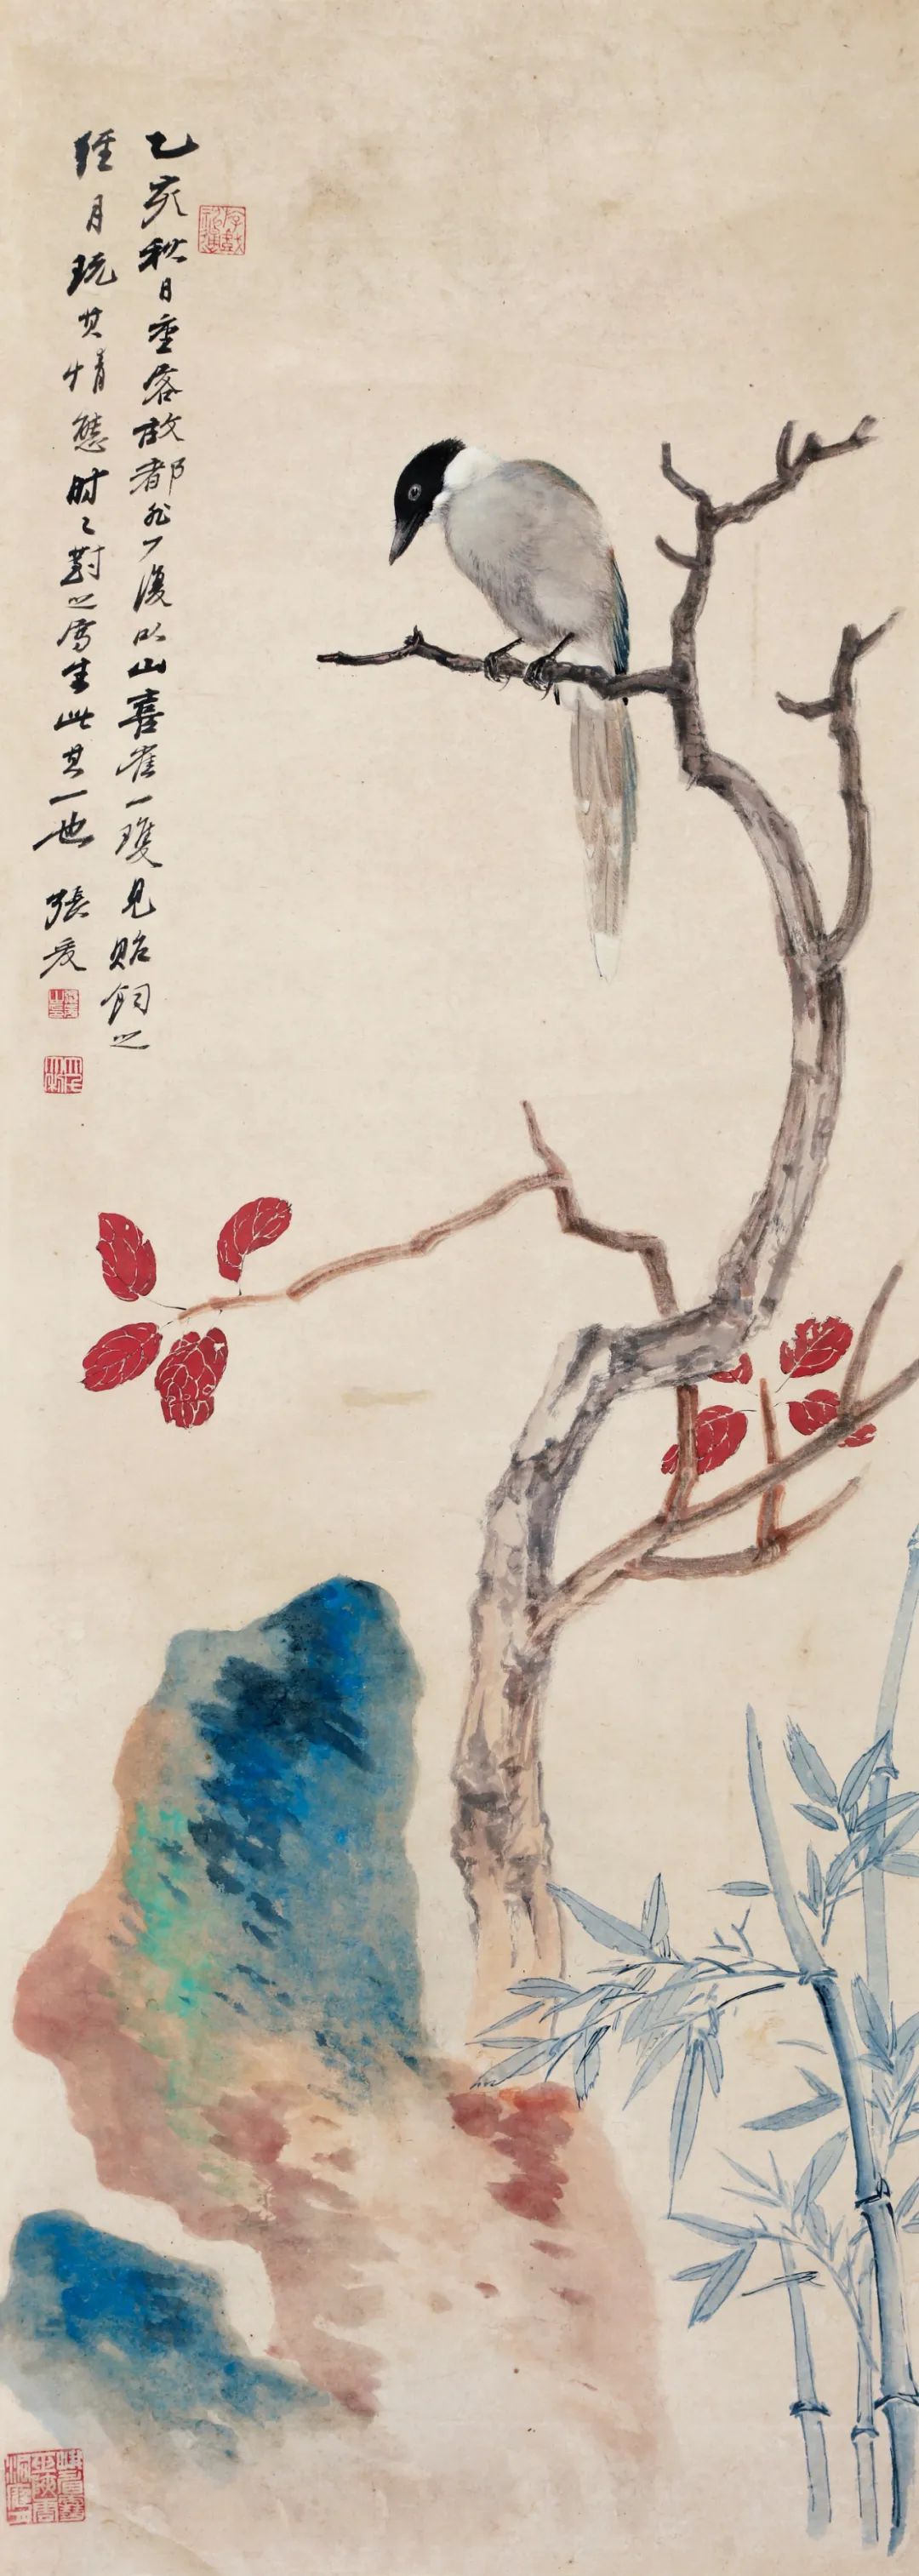 乙亥秋日重客故都 以山喜雀一双見貽飼之
經月玩其情態时〻對之寫生此其一也 張爰